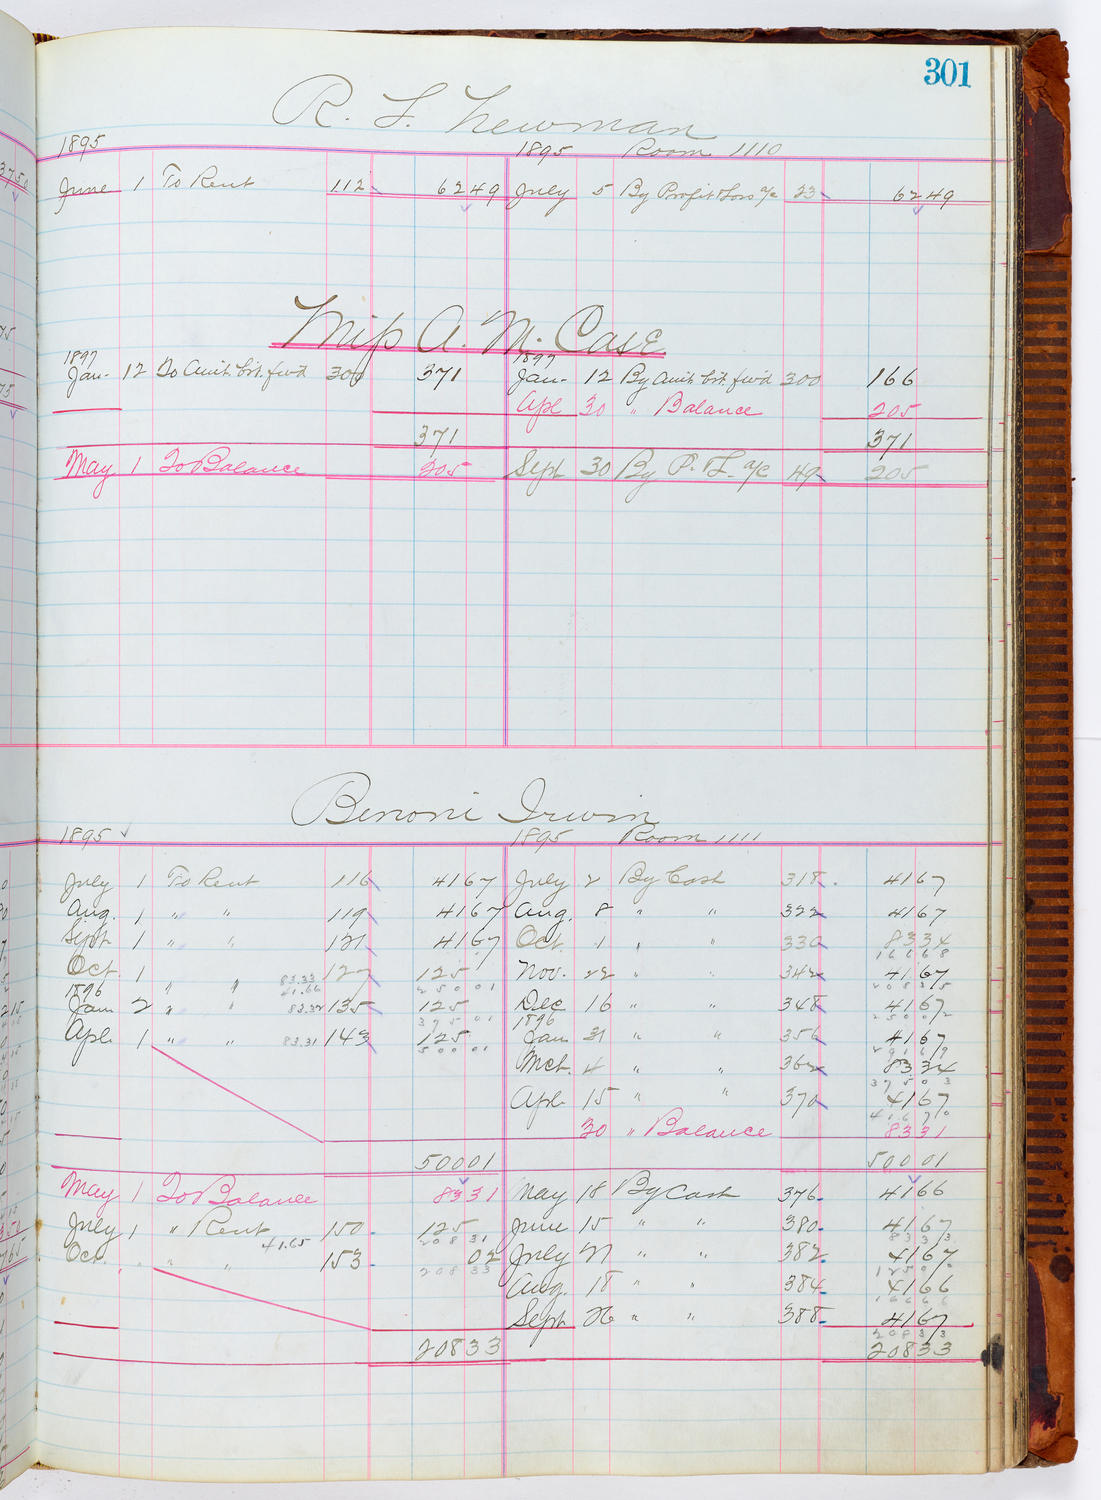 301
R. L. Newman
1895 1895 Room 1110
June 1 To Rent 112 62 49 July 5 By Profit & Loss a/c 23 62 49
Miss A. M. Case
1897 1897
Jan. 12 To Amt. brt. fwd 300 3 71 Jan. 12 By Amt. brt. fwd 300 1 66
Apl 30 " Balance 2 05
3 71 3 71
May 1 To Balance 2 05 Sept 30 By P. & L. a/c 49 2 05
Benoni Irwin
1895 1895 Room 1111
July 1 To Rent 116 41 67 July 2 By Cash 318 41 67
Aug. 1 " " 119 41 67 Aug. 8 " " 322 41 67
Sept 1 " " 121 41 67 Oct. 1 " " 330 83 34
166 68
Oct. 1 " " 83.33 127 125 Nov. 22 " " 342 41 67
1896 41.66 250 01 208 35
Jan 2 " " 83.32 135 125 Dec 16 " " 348 41 67
375 01 1896 250 02
Apl. 1 " " 83.31 143 125 Jan 31 " " 356 41 67
500 01 291 69
Mch. 4 " " 362 83 34
375 03
Apl. 15 " " 370 41 67
416 70
30 " Balance 83 31
500 01 500 01
May 1 To Balance 83 31 May 18 By Cash 376 41 66
July 1 " Rent 150 125 June 15 " " 380 41 67
41.65 208 31 83 33
Oct. " " 153 02 July 21 " " 382 41 67
208 33 125 0
Aug. 18 " " 384 41 66
166 66
Sept 26 " " 388 41 67
208 33
208 33 208 33